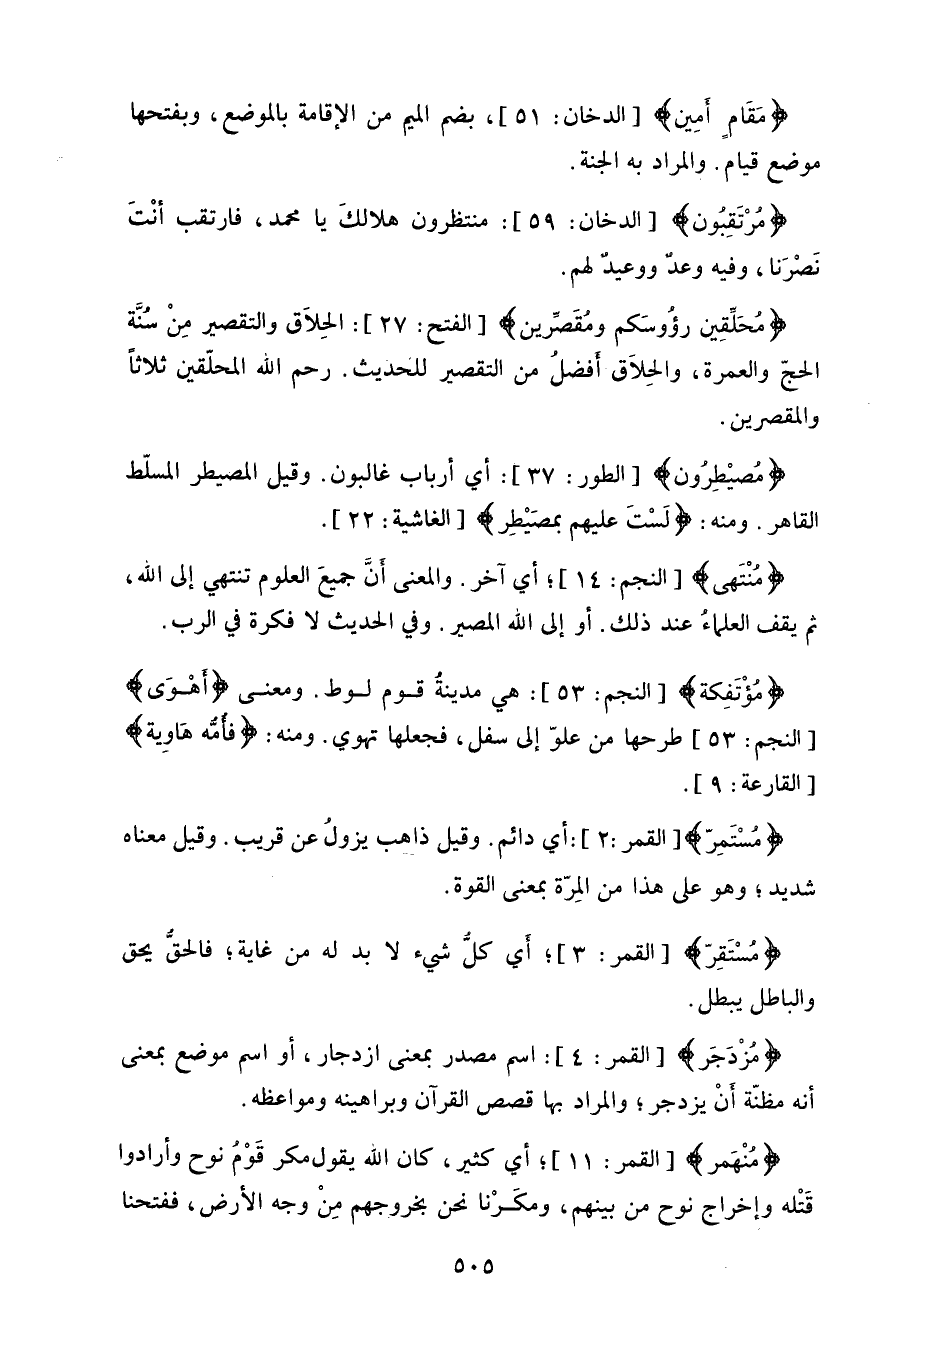 ﴿مَقَامٍ أَمِين﴾ [ الدخان: ٥١ ]، بضم الميم من الإقامة بالموضع، وبفتحها
موضع قيام. والمراد به الجنة.
﴿مُرْتَقِبُون﴾ [ الدخان: ٥٩ ]: منتظرون هلالكَ يا محمد، فارتقب أنْتَ
نَصْرَنا، وفيه وعدٌ ووعيدٌ لهم.
﴿مُحَلِّقِين رؤُوسَكم ومُقَصِّرين﴾ [ الفتح: ٢٧ ]: الحِلاَق والتقصير مِنْ سُنَّة
الحجّ والعمرة، والحِلاَق أفضلُ من التقصير للحديث. رحم الله المحلّقين ثلاثاً
والمقصرين.
﴿مُصيْطِرُون﴾ [ الطور: ٣٧ ]: أي أرباب غالبون. وقيل المصيطر المسلّط
القاهر. ومنه: ﴿لَسْتَ عليهم بمصَيْطِر﴾ [ الغاشية: ٢٢ ].
﴿مُنْتَهى﴾ [ النجم: ١٤ ]؛ أي آخر. والمعنى أنَّ جميعَ العلوم تنتهي إلى الله،
ثم يقف العلماءُ عند ذلك. أو إلى الله المصير. وفي الحديث لا فكرة في الرب.
﴿مُؤْتَفِكة﴾ [ النجم: ٥٣ ]: هي مدينةُ قوم لوط. ومعنى ﴿أَهْوَى﴾
[ النجم: ٥٣ ] طرحها من علوّ إلى سفل، فجعلها تهوي. ومنه: ﴿فأُمُّه هَاوِية﴾
[ القارعة: ٩ ].
﴿مُسْتَمِرّ﴾[ القمر :٢ ]:أي دائم. وقيل ذاهب يزولُ عن قريب. وقيل معناه
شديد؛ وهو على هذا من المِرّة بمعنى القوة.
﴿مُسْتَقِرّ﴾ [ القمر: ٣ ]؛ أي كلُّ شيء لا بد له من غاية؛ فالحقُّ يحق
والباطل يبطل.
﴿مُزْدَجَر﴾ [ القمر: ٤ ]: اسم مصدر بمعنى ازدجار، أو اسم موضع بمعنى
أنه مظنّة أَنْ يزدجر؛ والمراد بها قصص القرآن وبراهينه ومواعظه.
﴿مُنْهَمر﴾ [ القمر: ١١ ]؛ أي كثير، كان الله يقول مكر قَوْمُ نوح وأرادوا
قَتْله وإخراج نوح من بينهم، ومكَرْنا نحن بخروجهم مِنْ وجه الأرض، ففتحنا
٥٠٥